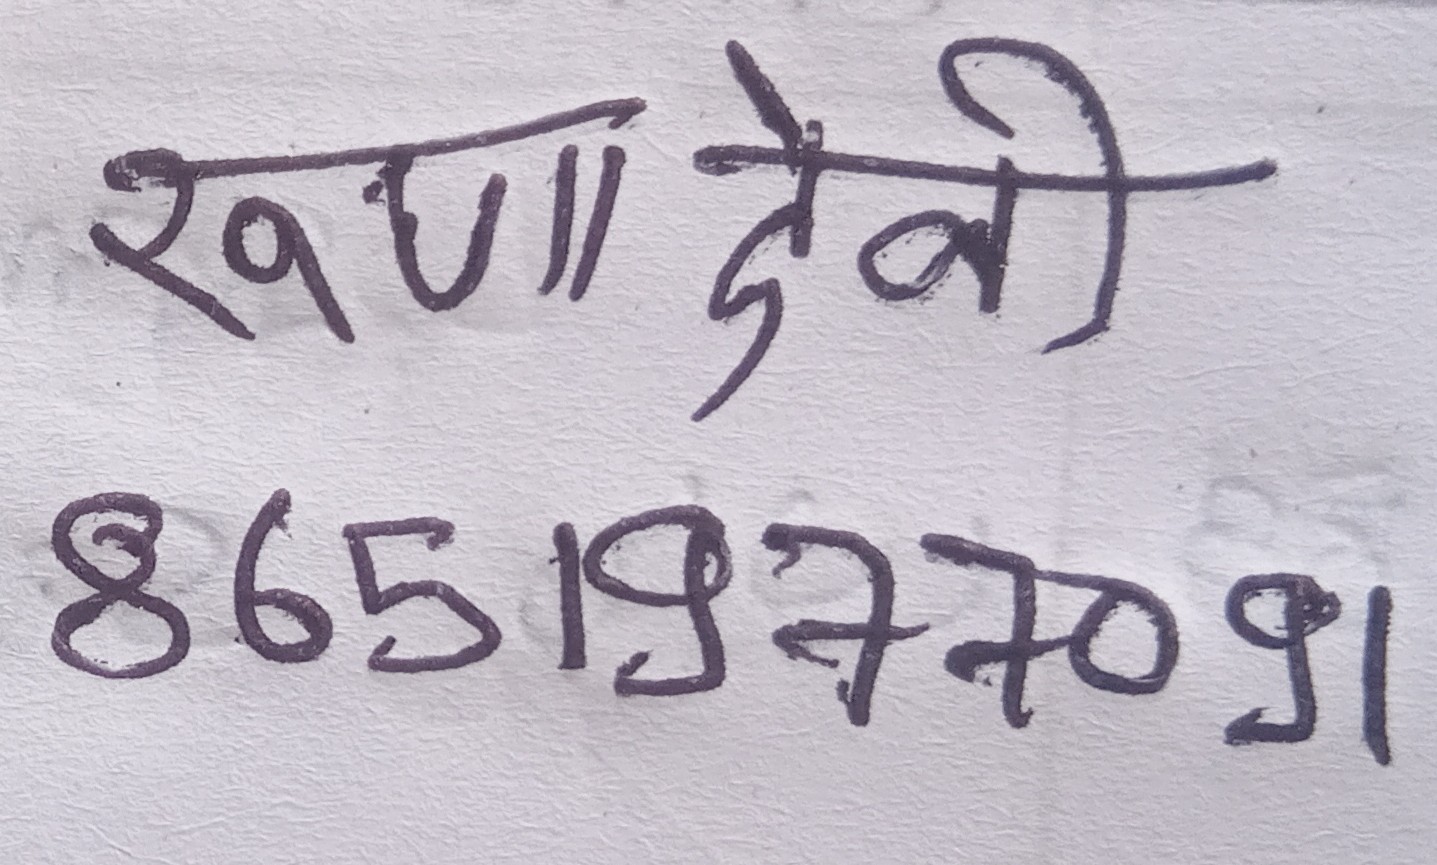 रूपा देवी
8651977091